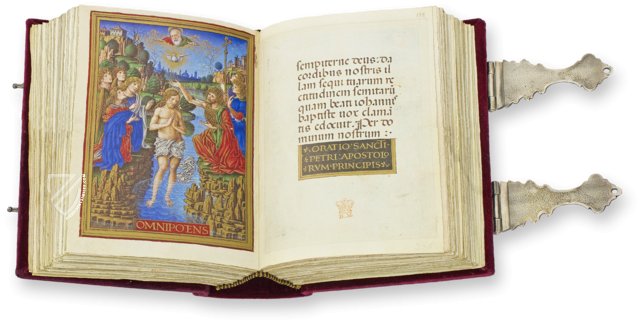 OMNIPOTENS
sempiterne deus: da
cordibus nostris il
lam sequi tuarum re
ctitudinem semitarū
quam beati iohannis
baptiste vox clamā
tis edocuit. Per do
minum nostrum :
ORATIO SANCTI
PETRI APOSTOLO
RVM PRINCIPIS